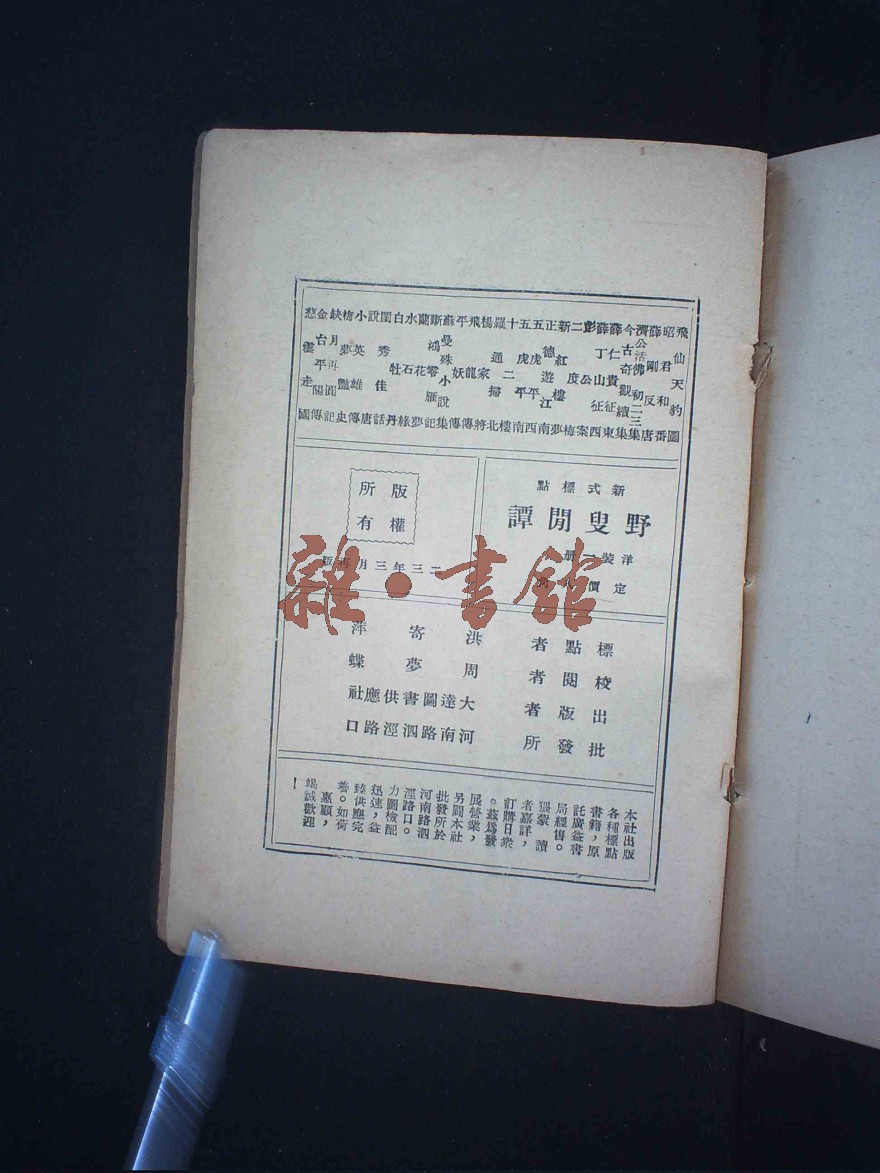 飛仙天豹圖
昭君和番
薛剛反唐
濟公活佛初二三集
今古奇觀續集
薛仁貴征東
薛丁山征西
彭公案
二度梅
新紅樓夢
正德遊江南
五虎平西
五虎平南
十二樓
羅通掃北
楊家將
飛龍傳
平妖傳
蘇曼殊小說集
斷鴻零雁記
蘭花夢
水石緣
白牡丹
閨秀佳話
說唐
小英雄傳
梅夢艷史
缺月再圓記
金台平陽傳
慈雲走國
新式標點
野叟閒譚
洋裝一册
定價
版權所有
二三年三月再版
標點者 洪寄萍
校閱者 周夢蝶
出版者 大達圖書供應社
批發所 河南路泗涇路口
本社出版
各種標點
書籍，原
託廣益書
局經售。
猥蒙 讀
者嘉許，
訂購日衆
。茲爲發
展營業，
另闢本社
批發所於
河南路泗
涇路口。
力圖檢配
迅速，益
臻供應完
善。如荷
惠顧，
竭誠歡迎
！
雜·書館